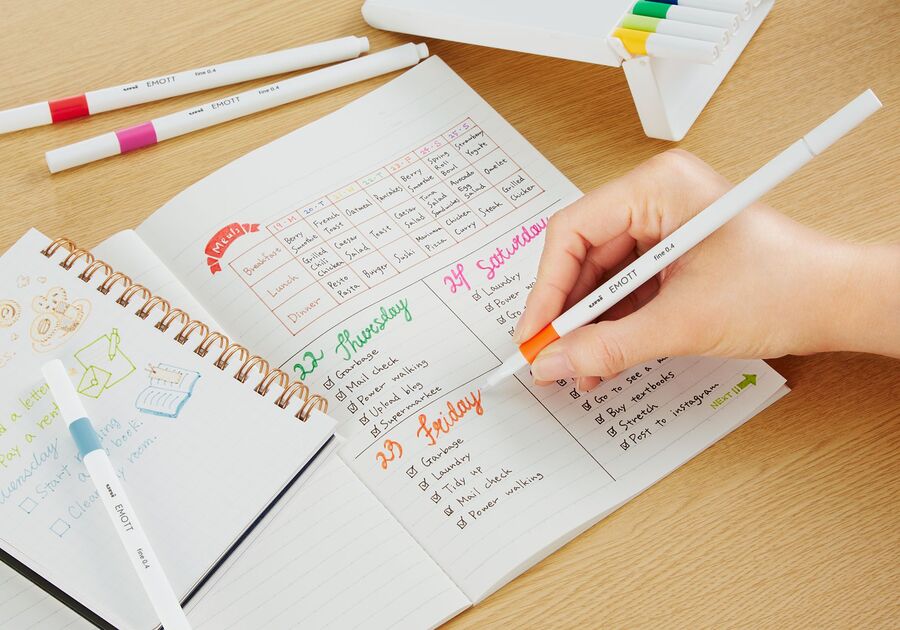 uni EMOTT fine 0.4
uni EMOTT fine 0.4
Meals
19·M 20·T 21·W 22·T 23·F 24·S 25·S
Breakfast Berry Smootie French Toast Oatmeal Pancakes Berry Smootie Spring Roll Bowl Strawberry Yogurte
Lunch Grilled Chili Chicken Caesar Salad Toast Caesar Salad Tuna Salad Sandwiches Avocado Egg Salad Omelet
Dinner Pesto Pasta Burger Sushi Marinara Pizza Chicken Curry Steak Grilled Chicken
22 Thursday
Garbage
Mail check
Power walking
Upload blog
Supermarket
24 Saturday
Laundry
Power
Go
23 Friday
Garbage
Laundry
Tidy up
Mail check
Power walking
Go to see a
Buy textbooks
Stretch
Post to instagram
NEXT!!
uni EMOTT fine 0.4
a letter
Pay a
Start
book.
Clear my room.
uni EMOTT fine 0.4